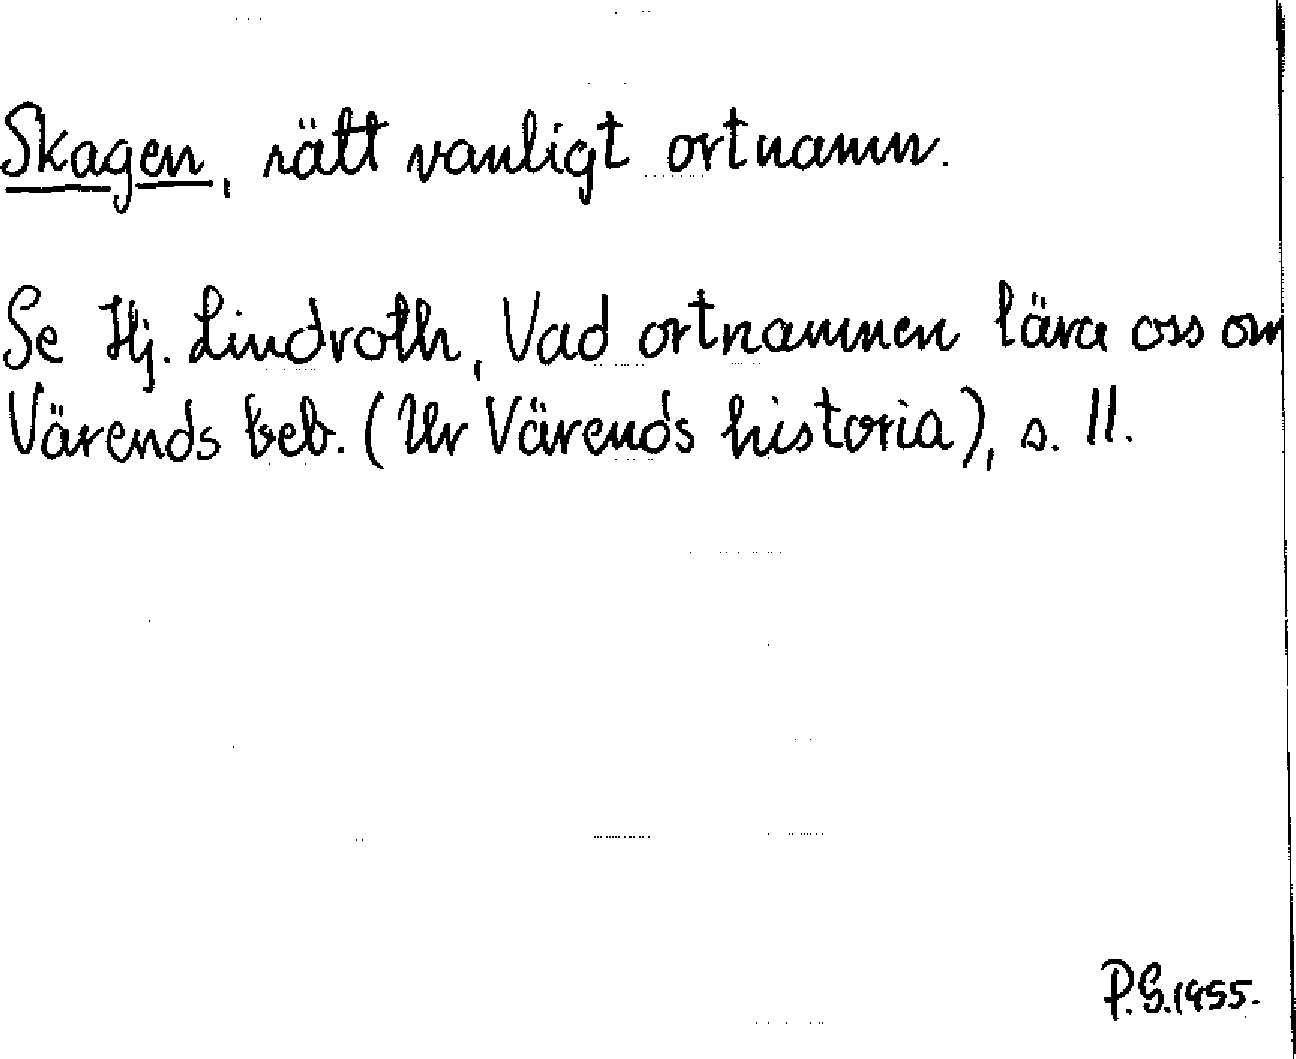 Skagen, rätt vanligt ortnamn.
Se Hj. Lindroth, Vad ortnamnen lära oss om
Värends beb. (Ur Värends historia), s. 11.
P.G. 1955.